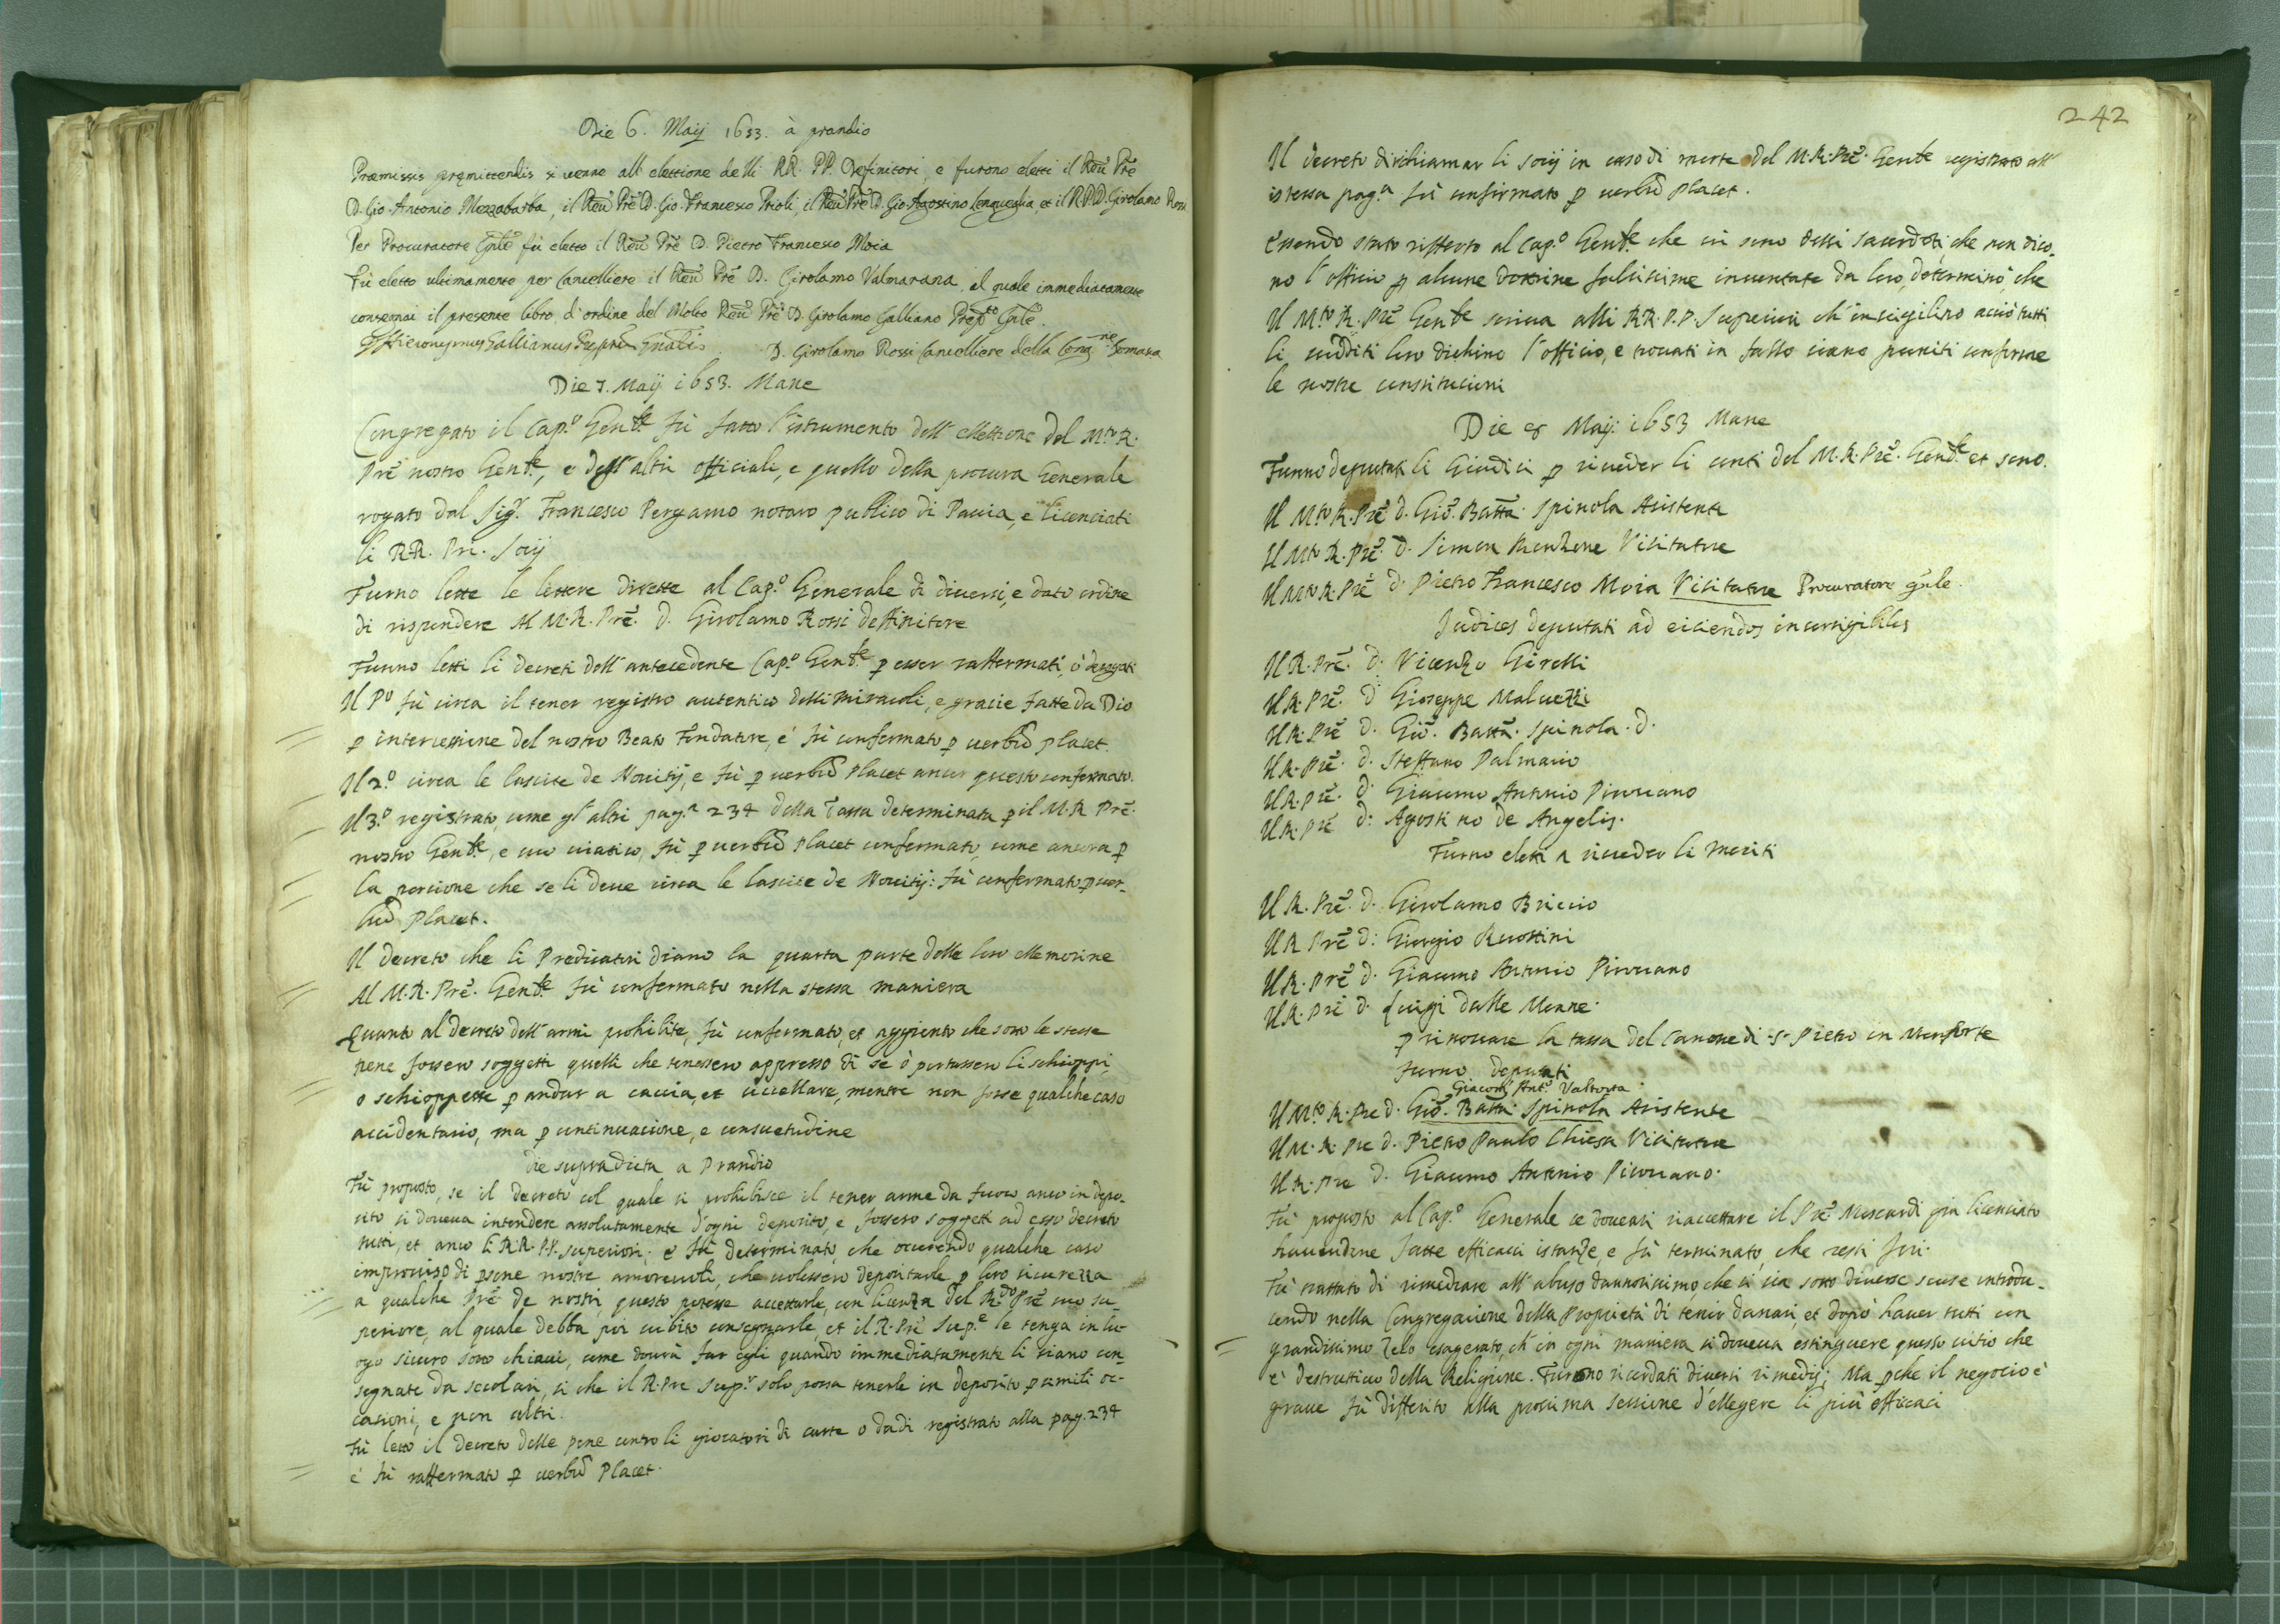 Die 6. Maij 1653. à prandio
Præmissis premittendis si venne all' elettione delli RR. PP. Definitori, e furono eletti il Reũ Prẽ
D. Gio. Antonio Mezzabarba, il Reũ Prẽ D. Gio. Francesco Prioli, il Reũ Prẽ D. Gio Agostino Lengueglia, et il R.P.D. Girolamo Rossi
Per Procuratore Gñle fù eletto il Reũ Prẽ D. Pietro Francesco Moia
Fù eletto ultimamente per Cancelliere il Reũ Prẽ D. Girolamo Valmarana, al quale immediatamente
consegnai il presente libro d'ordine del Molto Reũ Prẽ D. Girolamo Galliano Prep.to Gñle.
Hieronymus Gallianus Prepñs Gñalis D. Girolamo Rossi Cancelliere della Cong.ne Somasca
Die 7. Maij 1653. Mane
Congregato il Cap.o Gen.le fù fatto l'istrumento dell' elettione del M.to R.
Prẽ nostro Gen.le, e degl' altri officiali, e quello della procura Generale
rogato dal Sig.r Francesco Pergamo notaro publico di Pavia, e licenciati
li RR. Pri. Socij
Furno lette le lettere dirette al Cap.o Generale di diversi, e dato ordine
di rispondere Al M.R. Prẽ. D. Girolamo Rossi deffinitore
Furno letti li decreti dell' antecedente Cap.o Gen.le p esser raffermati, ò derogati
Il P.o fù circa il tener registro autentico delli miracoli, e gracie fatte da Dio
p intercessione del nostro Beato Fondatore, e fù confermato p verbũ placet.
Il 2.o circa le lascite de Novitij, e fù p verbũ placet ancor questo confermato.
Il 3.o registrato, come gl' altri pag.a 234 della Tassa determinata p il M.R Prẽ.
nostro Gen.le, e suo viatico, fù p verbũ placet confermato, come ancora p
la porcione che se li deve circa le lascite de Novitij: fù confermato p ver-
bũ placet.
Il decreto che li Predicatori diano la quarta parte delle loro ellemosine
Al M.R. Prẽ. Gen.le fù confermato nella stessa maniera
Quanto al decreto dell' armi prohibite, fù confermato, et aggionto che sotto le stesse
pene fossero soggetti quelli che tenessero appresso di se ò portassero li schioppi
o schioppette p andar a caccia, et uccellare, mentre non fosse qualche caso
accidentario, ma p continuacione, e consuetudine
die supradicta a Prandio
Fù proposto, se il decreto col quale si prohibisce il tener arme da fuoco anco in depo-
sito si doveva intendere assolutamente d'ogni deposito, e fossero soggetti ad esso decreto
tutti, et anco li RR. PP. superiori; e fù determinato, che occorrendo qualche caso
improviso di psone nostre amorevoli, che volessero depositarle p loro sicurezza
a qualche Prẽ de nostri, questo potesse accettarle, con licenza del R.do Prẽ suo su-
periore, al quale debba poi subito consegnarle, et il R. Prẽ Sup.e le tenga in lu-
ogo sicuro sotto chiave, come dovrà far egli quando immediatamente li siano con-
segnate da secolari, si che il R. Pre Sup.r solo possa tenerle in deposito p simili oc-
casioni, e non altri.
Fù letto il decreto delle pene contro li giocatori di carte o dadi registrato alla pag. 234
e fù raffermato p verbũ Placet.
242
Il decreto di richiamar li socij in caso di morte del M.R. Prẽ. Gen.le registrato all'
istessa pag.a fù confirmato p verbũ placet.
Essendo stato rifferto al Cap.o Gen.le che vi sono delli sacerdoti che non dico-
no l'officio p alcune dottrine falsissime inventate da loro, determinò che
Il M.to R. Prẽ Gen.le scriva alli RR. P.P. Superiori ch' invigilino acciò tutti
li sudditi loro dichino l'officio, e trovati in fallo siano puniti conforme
le nostre constitucioni
Die 8 Maij 1653 Mane
Furno deputati li Giudici p riveder li conti del M.R. Prẽ. Gen.le et sono.
Il M.to R. Prẽ d. Giõ. Battã. Spinola Asistente
Il M.to R. Prẽ. d. Simon Visitatore
Il M.to R. Prẽ d. Pietro Francesco Moia Visitatore Procuratore gñle.
Judices deputati ad eiciendos incorrigibiles
Il R. Prẽ. d. Vicenzo Girelli
Il R. Prẽ. d. Gioseppe Malvezzi
Il R. Prẽ d. Giõ. Battã. Spinola. d.
Il R. Prẽ. d. Steffano Palmario
Il R. Prẽ. d. Giacomo Antonio Pirovano
Il R. Prẽ d. Agostino de Angelis.
Furno eletti a riveder li meriti
Il R. Prẽ. d. Girolamo Briccio
Il R Prẽ d: Giorgio
Il R. Prẽ d. Giacomo Antonio Pirovano
Il R. Prẽ d. Luigi dalle Monne.
p rinovare la tassa del Canone di S. Pietro in Monforte
furno deputati
Giacom' Ant.o Valtorta
Il M.to R. Pre d. Giõ. Battã. Spinola Asistente
Il M. R. Pre d. Pietro Paulo Chiesa Visitatore
Il R. Pre d. Giacomo Antonio Pirovano.
Fù proposto al Cap.o Generale se dovevasi riaccettare il Prẽ. Moscardi già licenciato
havendone fatte efficaci istanze, e fù terminato, che resti fori.
Fù trattato di rimediare all' abuso dannosissimo, che si sia sotto diverse scuse introdu-
cendo nella Congregacione della Proprietà di tenir danari, et dopò haver tutti con
grandissimo zelo esagerato, ch' in ogni maniera si doveva estinguere questo vitio che
è destruttivo della Religione. Furono ricordati diversi rimedij; Ma pche il negocio è
grave fù differito alla prossima sessione d'ellegere li più efficaci